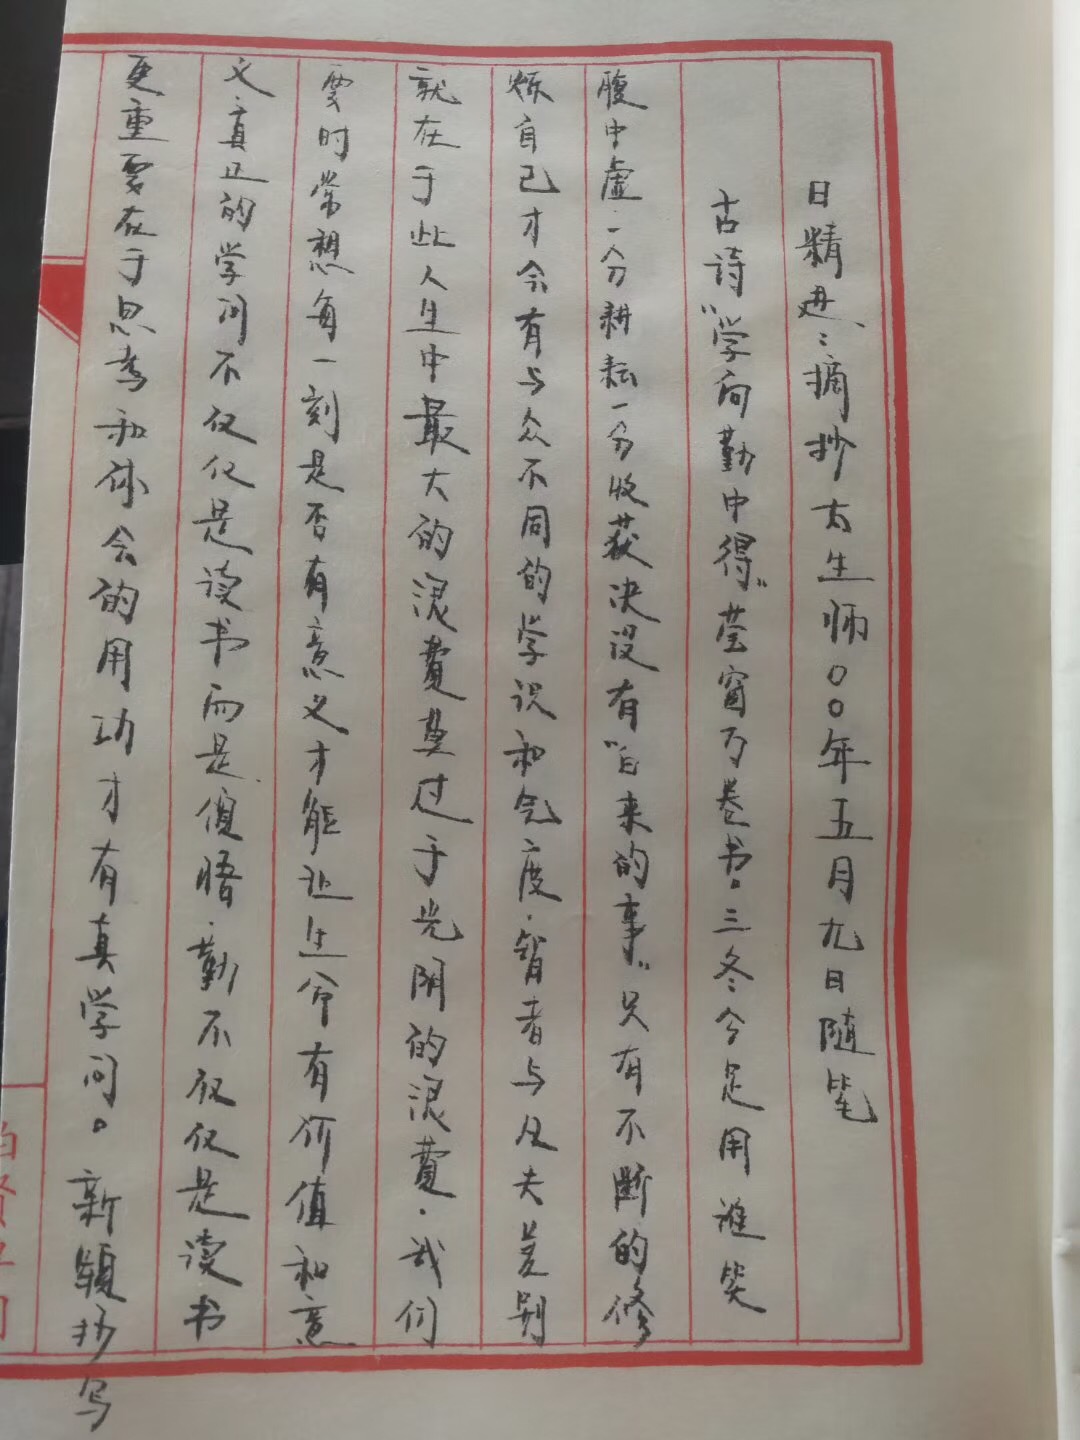 日精进：摘抄太生师〇〇年五月九日随笔
古诗“学问勤中得”萤窗万卷书。三冬今足用谁笑
腹中虚．一分耕耘一分收获决没有“白来的事”只有不断的修
炼自己才会有与众不同的学识和气度．智者与凡夫差别
就在于此人生中最大的浪費莫过于光阴的浪費．我们
要时常想每一刻是否有意义才能让生命有价值和意
义．真正的学问不仅仅是读书而是 悟．勤不仅仅是读书
更重要在于思考和体会的用功才有真学问。新颖抄写